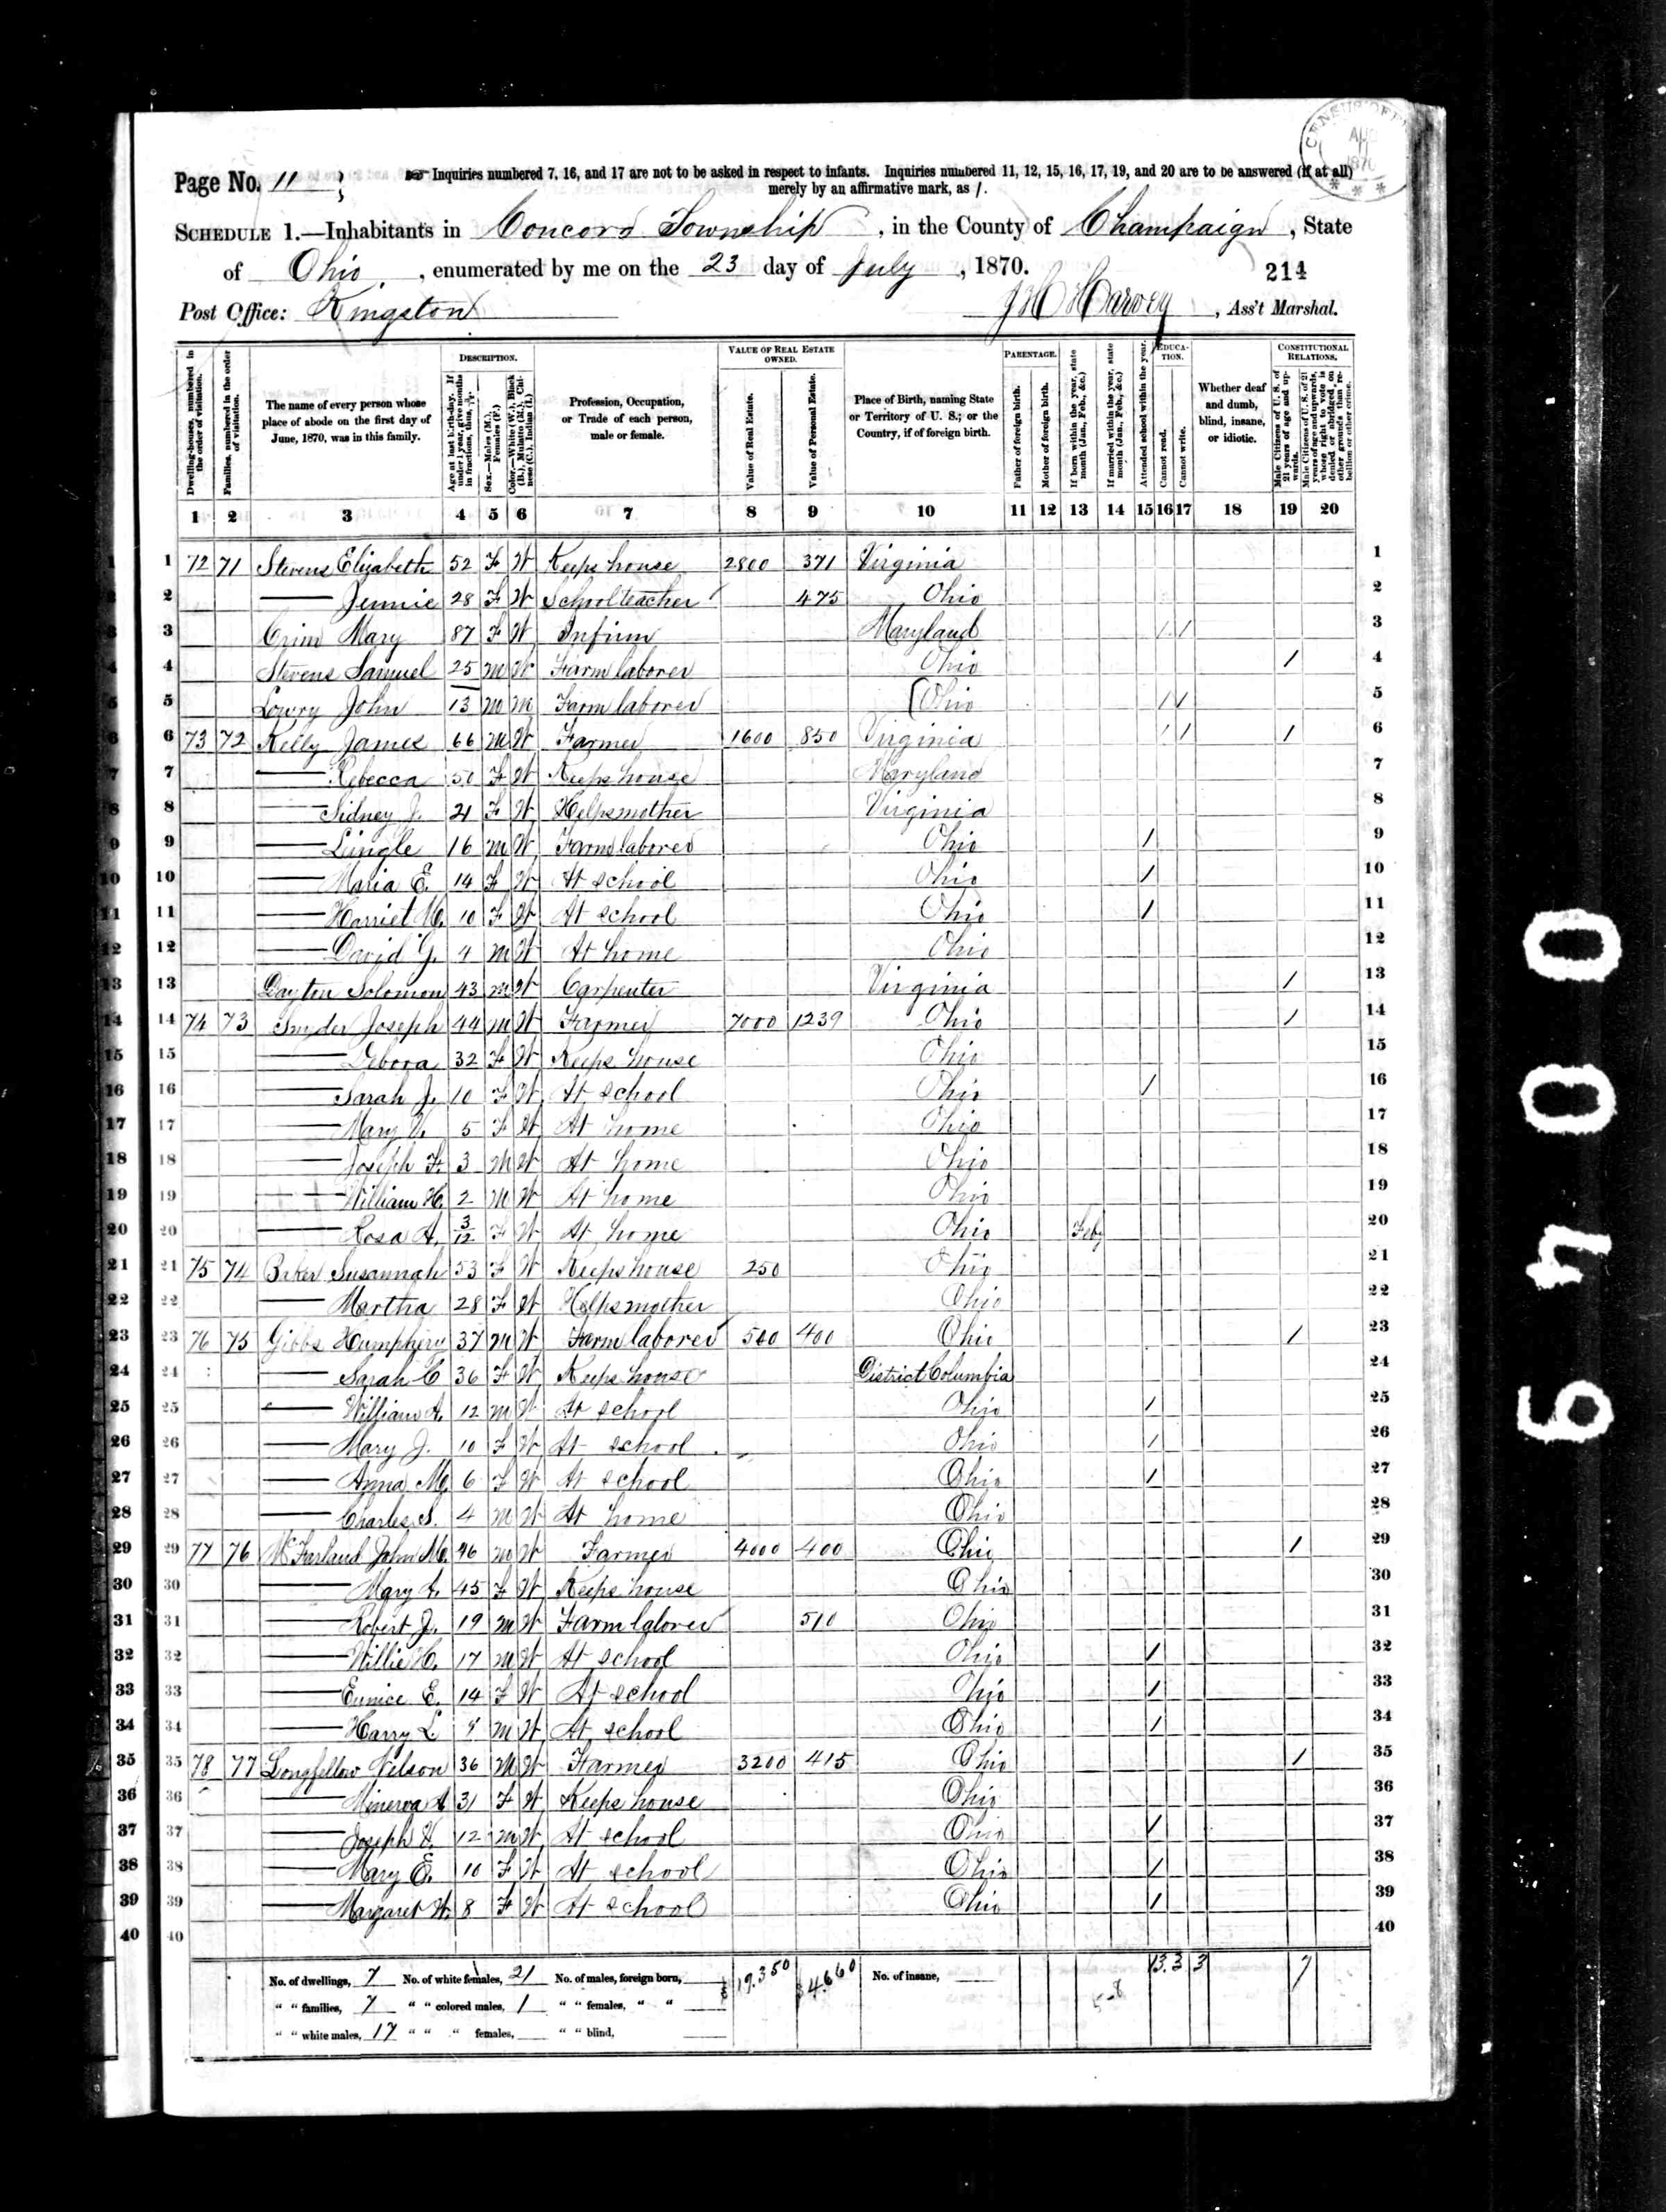 Page No. 11
Inquiries numbered 7, 16, and 17 are not to be asked in respect to infants. Inquiries numbered 11, 12, 15, 16, 17, 19, and 20 are to be answered (if at all) merely by an affirmative mark, as /.
CENSUS OFF
1870
SCHEDULE 1.—Inhabitants in Concord Township, in the County of Champaign, State
of Ohio, enumerated by me on the 23 day of July, 1870.
214
Post Office: Kingston
J H Harvey, Ass't Marshal.
DESCRIPTION.
VALUE OF REAL ESTATE OWNED.
PARENTAGE.
EDUCATION.
CONSTITUTIONAL RELATIONS.
Dwelling-houses, numbered in the order of visitation.
Families, numbered in the order of visitation.
The name of every person whose place of abode on the first day of June, 1870, was in this family.
Age at last birth-day. If under 1 year, give months in fractions, thus, 3/12.
Sex.—Males (M.), Females (F.)
Color.—White (W.), Black (B.), Mulatto (M.), Chinese (C.), Indian (I.)
Profession, Occupation, or Trade of each person, male or female.
Value of Real Estate.
Value of Personal Estate.
Place of Birth, naming State or Territory of U. S.; or the Country, if of foreign birth.
Father of foreign birth.
Mother of foreign birth.
If born within the year, state month (Jan., Feb., &c.)
If married within the year, state month (Jan., Feb., &c.)
Attended school within the year.
Cannot read.
Cannot write.
Whether deaf and dumb, blind, insane, or idiotic.
Male Citizens of U. S. of 21 years of age and upwards.
Male Citizens of U. S. of 21 years of age and upwards, whose right to vote is denied or abridged on other grounds than rebellion or other crime.
1 2 3 4 5 6 7 8 9 10 11 12 13 14 15 16 17 18 19 20
1 72 71 Stevens Elizabeth 52 F W Keeps house 2800 371 Virginia 1
2 — Jennie 28 F W School teacher 475 Ohio 2
3 Crim Mary 87 F W Infirm Maryland / / 3
4 Stevens Samuel 25 M W Farm laborer Ohio / 4
5 Lowry John 13 M M Farm laborer Ohio / / 5
6 73 72 Kelly James 66 M W Farmer 1600 850 Virginia / / / 6
7 — Rebecca 50 F W Keeps house Maryland 7
8 — Sidney J. 21 F W Helps mother Virginia 8
9 — Lingle 16 M W Farm laborer Ohio / 9
10 — Maria E. 14 F W At school Ohio / 10
11 — Harriet M. 10 F W At school Ohio / 11
12 — David G. 4 M W At home Ohio 12
13 Dayton Solomon 43 M W Carpenter Virginia / 13
14 74 73 Snyder Joseph 44 M W Farmer 7000 1239 Ohio / 14
15 — Debora 32 F W Keeps house Ohio 15
16 — Sarah J. 10 F W At school Ohio / 16
17 — Mary 5 F W At home Ohio 17
18 — Joseph F. 3 M W At home Ohio 18
19 — William H. 2 M W At home Ohio 19
20 — Rosa A. 3/12 F W At home Ohio Feby 20
21 75 74 Baker Susannah 53 F W Keeps house 250 Ohio 21
22 — Martha 28 F W Helps mother Ohio 22
23 76 75 Gibbs Humphery 37 M W Farm laborer 500 400 Ohio / 23
24 — Sarah C 36 F W Keeps house District Columbia 24
25 — William A. 12 M W At school Ohio / 25
26 — Mary J. 10 F W At school Ohio / 26
27 — Anna M. 6 F W At school Ohio / 27
28 — Charles S. 4 M W At home Ohio 28
29 77 76 McFarland John M. 46 M W Farmer 4000 400 Ohio / 29
30 — Mary A. 45 F W Keeps house Ohio 30
31 — Robert J. 19 M W Farm laborer 510 Ohio 31
32 — Willie H. 17 M W At school Ohio / 32
33 — Eunice E. 14 F W At school Ohio / 33
34 — Harry L. M W At school Ohio / 34
35 78 77 Longfellow Nelson 36 M W Farmer 3200 415 Ohio / 35
36 — Minerva A 31 F W Keeps house Ohio 36
37 — Joseph 12 M W At school Ohio / 37
38 — Mary E. 10 F W At school Ohio / 38
39 — Margaret A. 8 F W At school Ohio / 39
40 40
No. of dwellings, 7 No. of white females, 21 No. of males, foreign born, 19,350 $4660 No. of insane, 13 3 3 7
" " families, 7 " " colored males, 1 " " females, " "
" " white males, 17 " " " females, " " blind,
000449